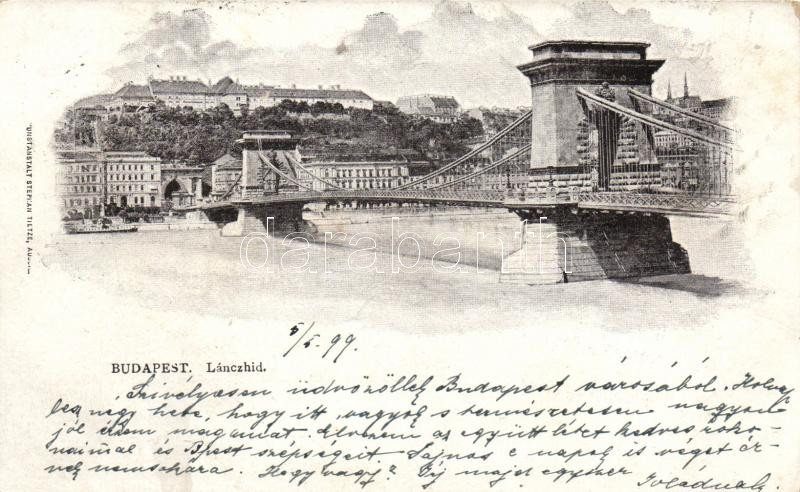 KUNSTANSTALT STEPHAN TIETZE,
darabanth
5/5 99.
BUDAPEST. Lánczhid.
Szívélyesen üdvözöllek Budapest városából. Holnap
lesz négy hete, hogy itt vagyok s természetesen nagyon
jól érzem magamat. Élvezem az együttlétet kedves roko-
naimal és Bpest szépségeit Sajnos e napok is véget ér-
nek nemsokára. Hogy vagy? Írj majd egyszer